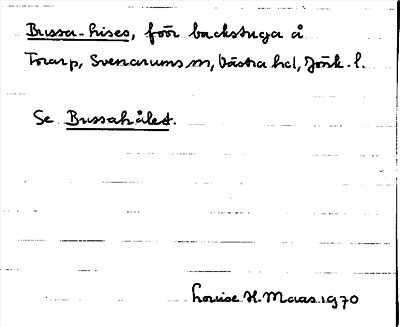 Bussa-hises, förr backstuga å
Torarp, Svenarums sn, Västra hd, Jönk. l.
Se Bussahålet.
Louise H. Maas 1970